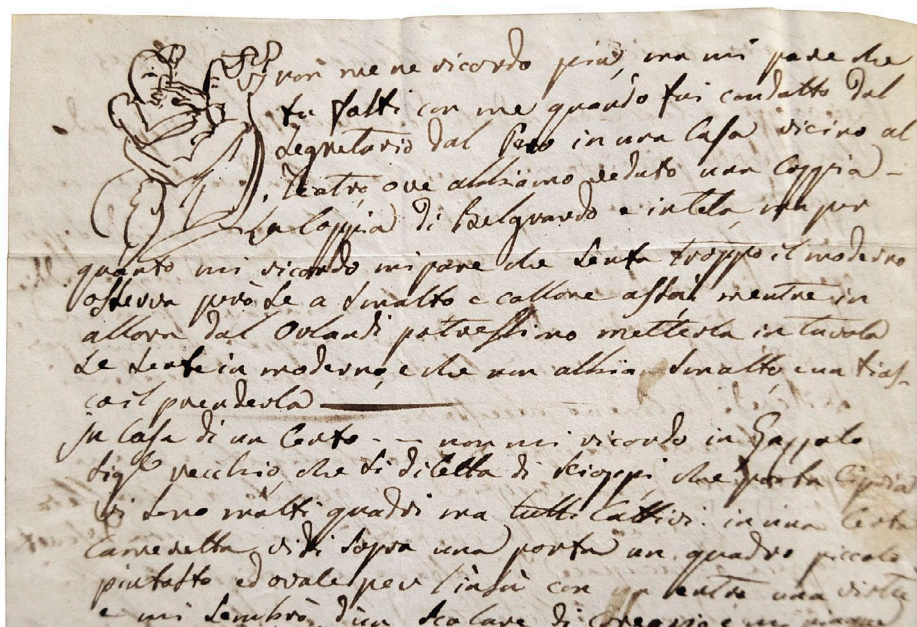 non me ne ricordo più, ma mi pare che
tu fosti con me quando fui condotto dal
Segretario dal Pezo in una Casa vicino al
Teatro, ove abbiamo veduto una Coppia –
La Coppia di Belguardo e in tela, ma per
quanto mi ricordo mi pare che senta troppo il moderno
osserva però se a smalto e collore assai mentre in
allora dal Orlandi potressimo metterla in tavola
se sente in moderno, e che non abbia smalto, e un fias-
co il prenderla
In Casa di un Certo – – non mi ricordo in
Sigr. vecchio, che si diletta di, che porta Cipria
vi sono molti quadri ma tutti Cattivi: in una Certa
Cameretta vidi sopra una porta un quadro piccolo
piutosto ed ovale per l'insù con entro una virtù
e mi sembrò d'un Scolare di Coregio e mi piacque